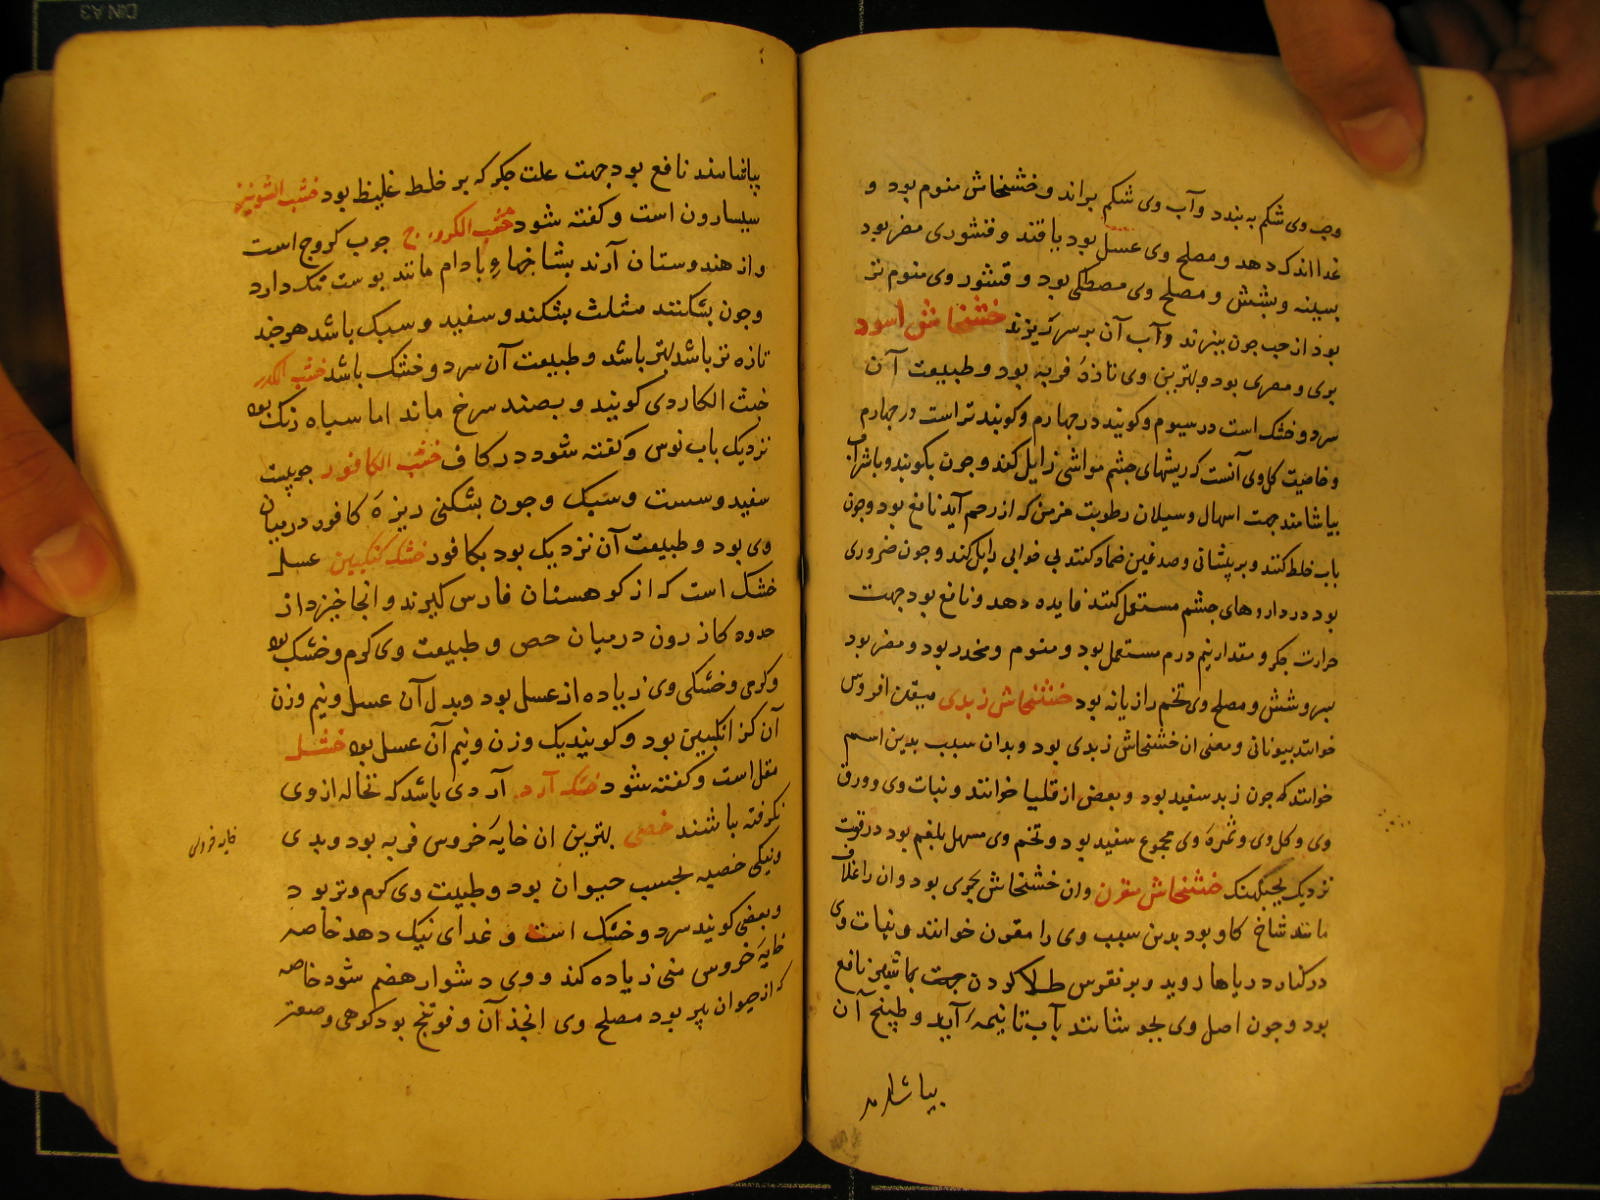 وحب وی شکم به بندد و آب وی شکم براند و خشخاش منوم بود و
غذا اندک دهد و مصلح وی عسل بود یا قند و قشوری مضر بود
بسینه و بشش و مصلح وی مصطکی بود و قشور وی منوم تر
بود از حب چون بپزند و آب آن بر سر ریزند خشخاش اسود
بری و مصری بود و بهترین وی تازهٔ فربه بود و طبیعت آن
سرد و خشک است در سیوم و گویند در چهارم و گویند تر است در چهارم
و خاصیت گل وی آنست که ریشهای چشم مواشی زایل کند و چون بکوبند و با شراب
بیاشامند جهت اسهال و سیلان رطوبت مزمن که از رحم آید نافع بود و چون
باب خلط کنند و بر پیشانی و صدغین ضماد کنند بی خوابی زایل کند و چون ضروری
بود در داروهای چشم مستعمل کنند فایده دهد و نافع بود جهت
حرارت جگر و مقدار نیم درم مستعمل بود و منوم و مخدر بود و مضر بود
بسر و شش و مصلح وی تخم رازیانه بود خشخاش زبدی میقن افروس
خوانند بیونانی و معنی آن خشخاش زبدی بود و بدان سبب بدین اسم
خوانند که چون زبد سفید بود و بعض از قلیا خوانند و نبات وی و ورق
وی و گل وی و ثمرهٔ وی مجموع سفید بود و تخم وی مسهل بلغم بود در قوت
نزدیک بجبلهنک خشخاش مقرن و آن خشخاش بحری بود و آن را غلاف
مانند شاخ گاو بود بدین سبب وی را مقرن خوانند و نبات وی
در کنار دریاها روید و بر نقرس طلا کردن جهت بماشین نافع
بود و چون اصل وی بجوشانند بآب تا نیمه آید و طبیخ آن
بیاشامند
بیاشامند نافع بود جهت علت جگر که بر خلط غلیظ بود خشب الشونیز
سیسارون است و گفته شود خشب الکروج چوب کروج است
و از هندوستان آرند بشاخهاء بادام مانند پوست تنک دارد
و چون بشکنند مثلث بشکند و سفید و سبک باشد هرچند
تازه تر باشد بهتر باشد و طبیعت آن سرد و خشک باشد خشب الکدر
خبث الکاردی گویند و بصند سرخ ماند اما سیاه رنک بود
نزدیک باب نوس و گفته شود در کاف خشب الکافور چوبیست
سفید و سست و سبک و چون بشکنی ریزهٔ کافور در میان
وی بود و طبیعت آن نزدیک بود بکافور خشک انکبین عسلی
خشک است که از کوهستان فارس گیرند و آنجا خیزد از
حدود کازرون در میان حص و طبیعت وی گرم و خشک بود
و گرمی و خشکی وی زیاده از عسل بود و بدل آن عسل و نیم وزن
آن گز انکبین بود و گویند یک وزن و نیم آن عسل بود خشل
مقل است و گفته شود خشک آرد آردی باشد که نخاله از وی
نگرفته باشند خصی بهترین آن خایهٔ خروس فربه بود و بدی
و نیکی خصیه بحسب حیوان بود و طبیعت وی گرم و تر بود
و بعضی گویند سرد و خشک است و غدای نیک دهد خاصه
خایهٔ خروس منی زیاده کند و وی دشوار هضم شود خاصه
که از حیوان پیر بود مصلح وی انجذان و فوتنج بود کوهی و صعتر